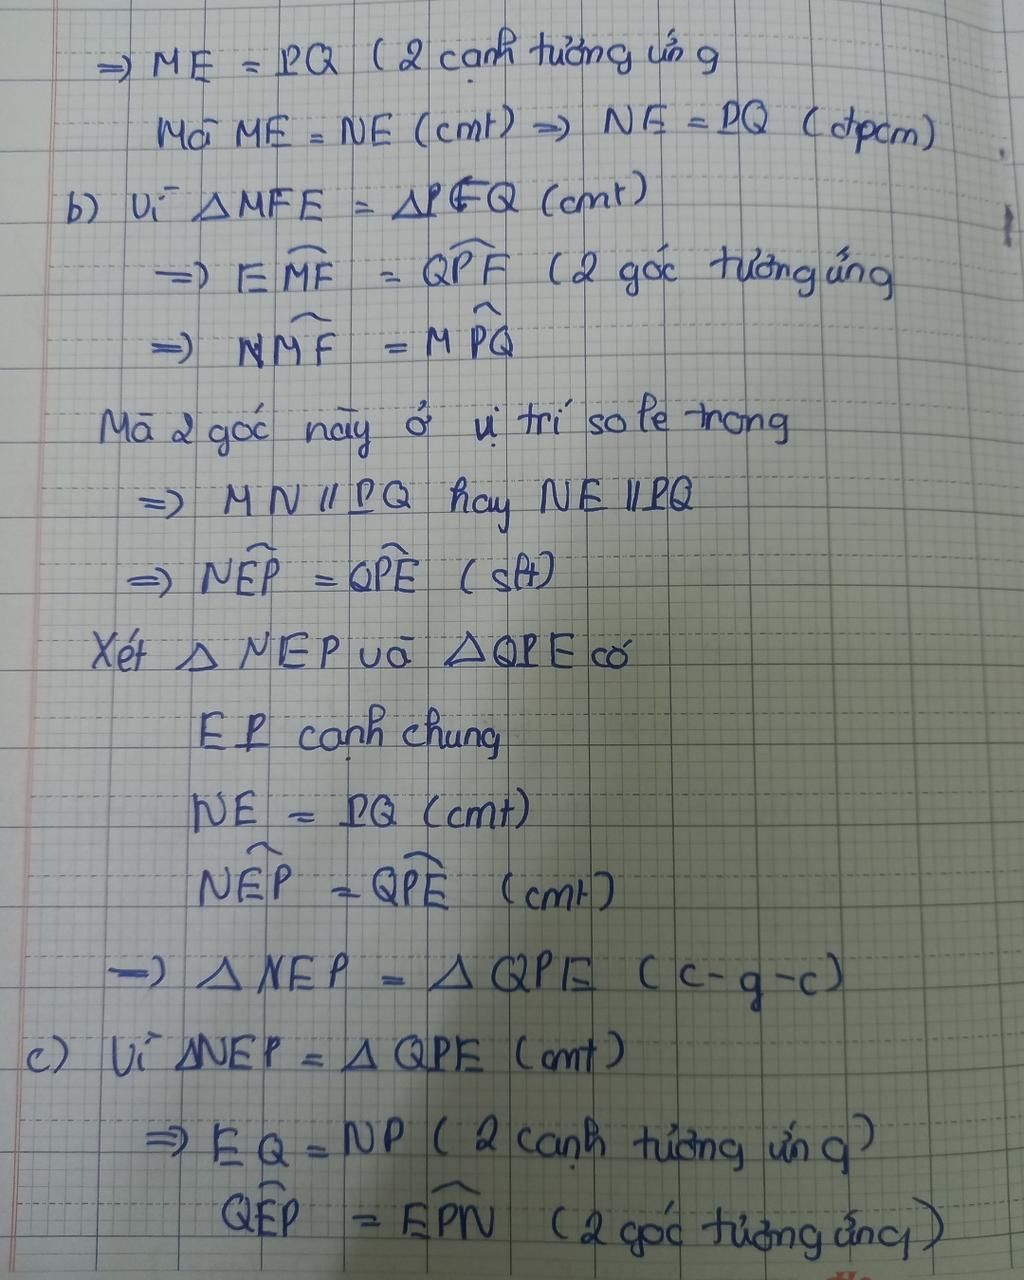 ⇒ ME = PQ ( 2 cạnh tương ứng
Mà ME = NE (cmt) ⇒ NE = PQ (đpcm)
b) Vì △MFE = △PFQ (cmt)
⇒ EM̂F = QP̂F ( 2 góc tương ứng
⇒ NM̂F = MP̂Q
Mà 2 góc này ở vị trí so le trong
⇒ MN // PQ hay NE // PQ
⇒ NÊP = QP̂E ( slt)
Xét △ NEP và △QPE có
EP cạnh chung
NE = PQ (cmt)
NÊP = QP̂E (cmt)
⇒ △ NEP = △ QPE ( c-g-c)
c) Vì △NEP = △ QPE (cmt)
⇒ EQ = NP ( 2 cạnh tương ứng)
QÊP = EP̂N ( 2 góc tương ứng)